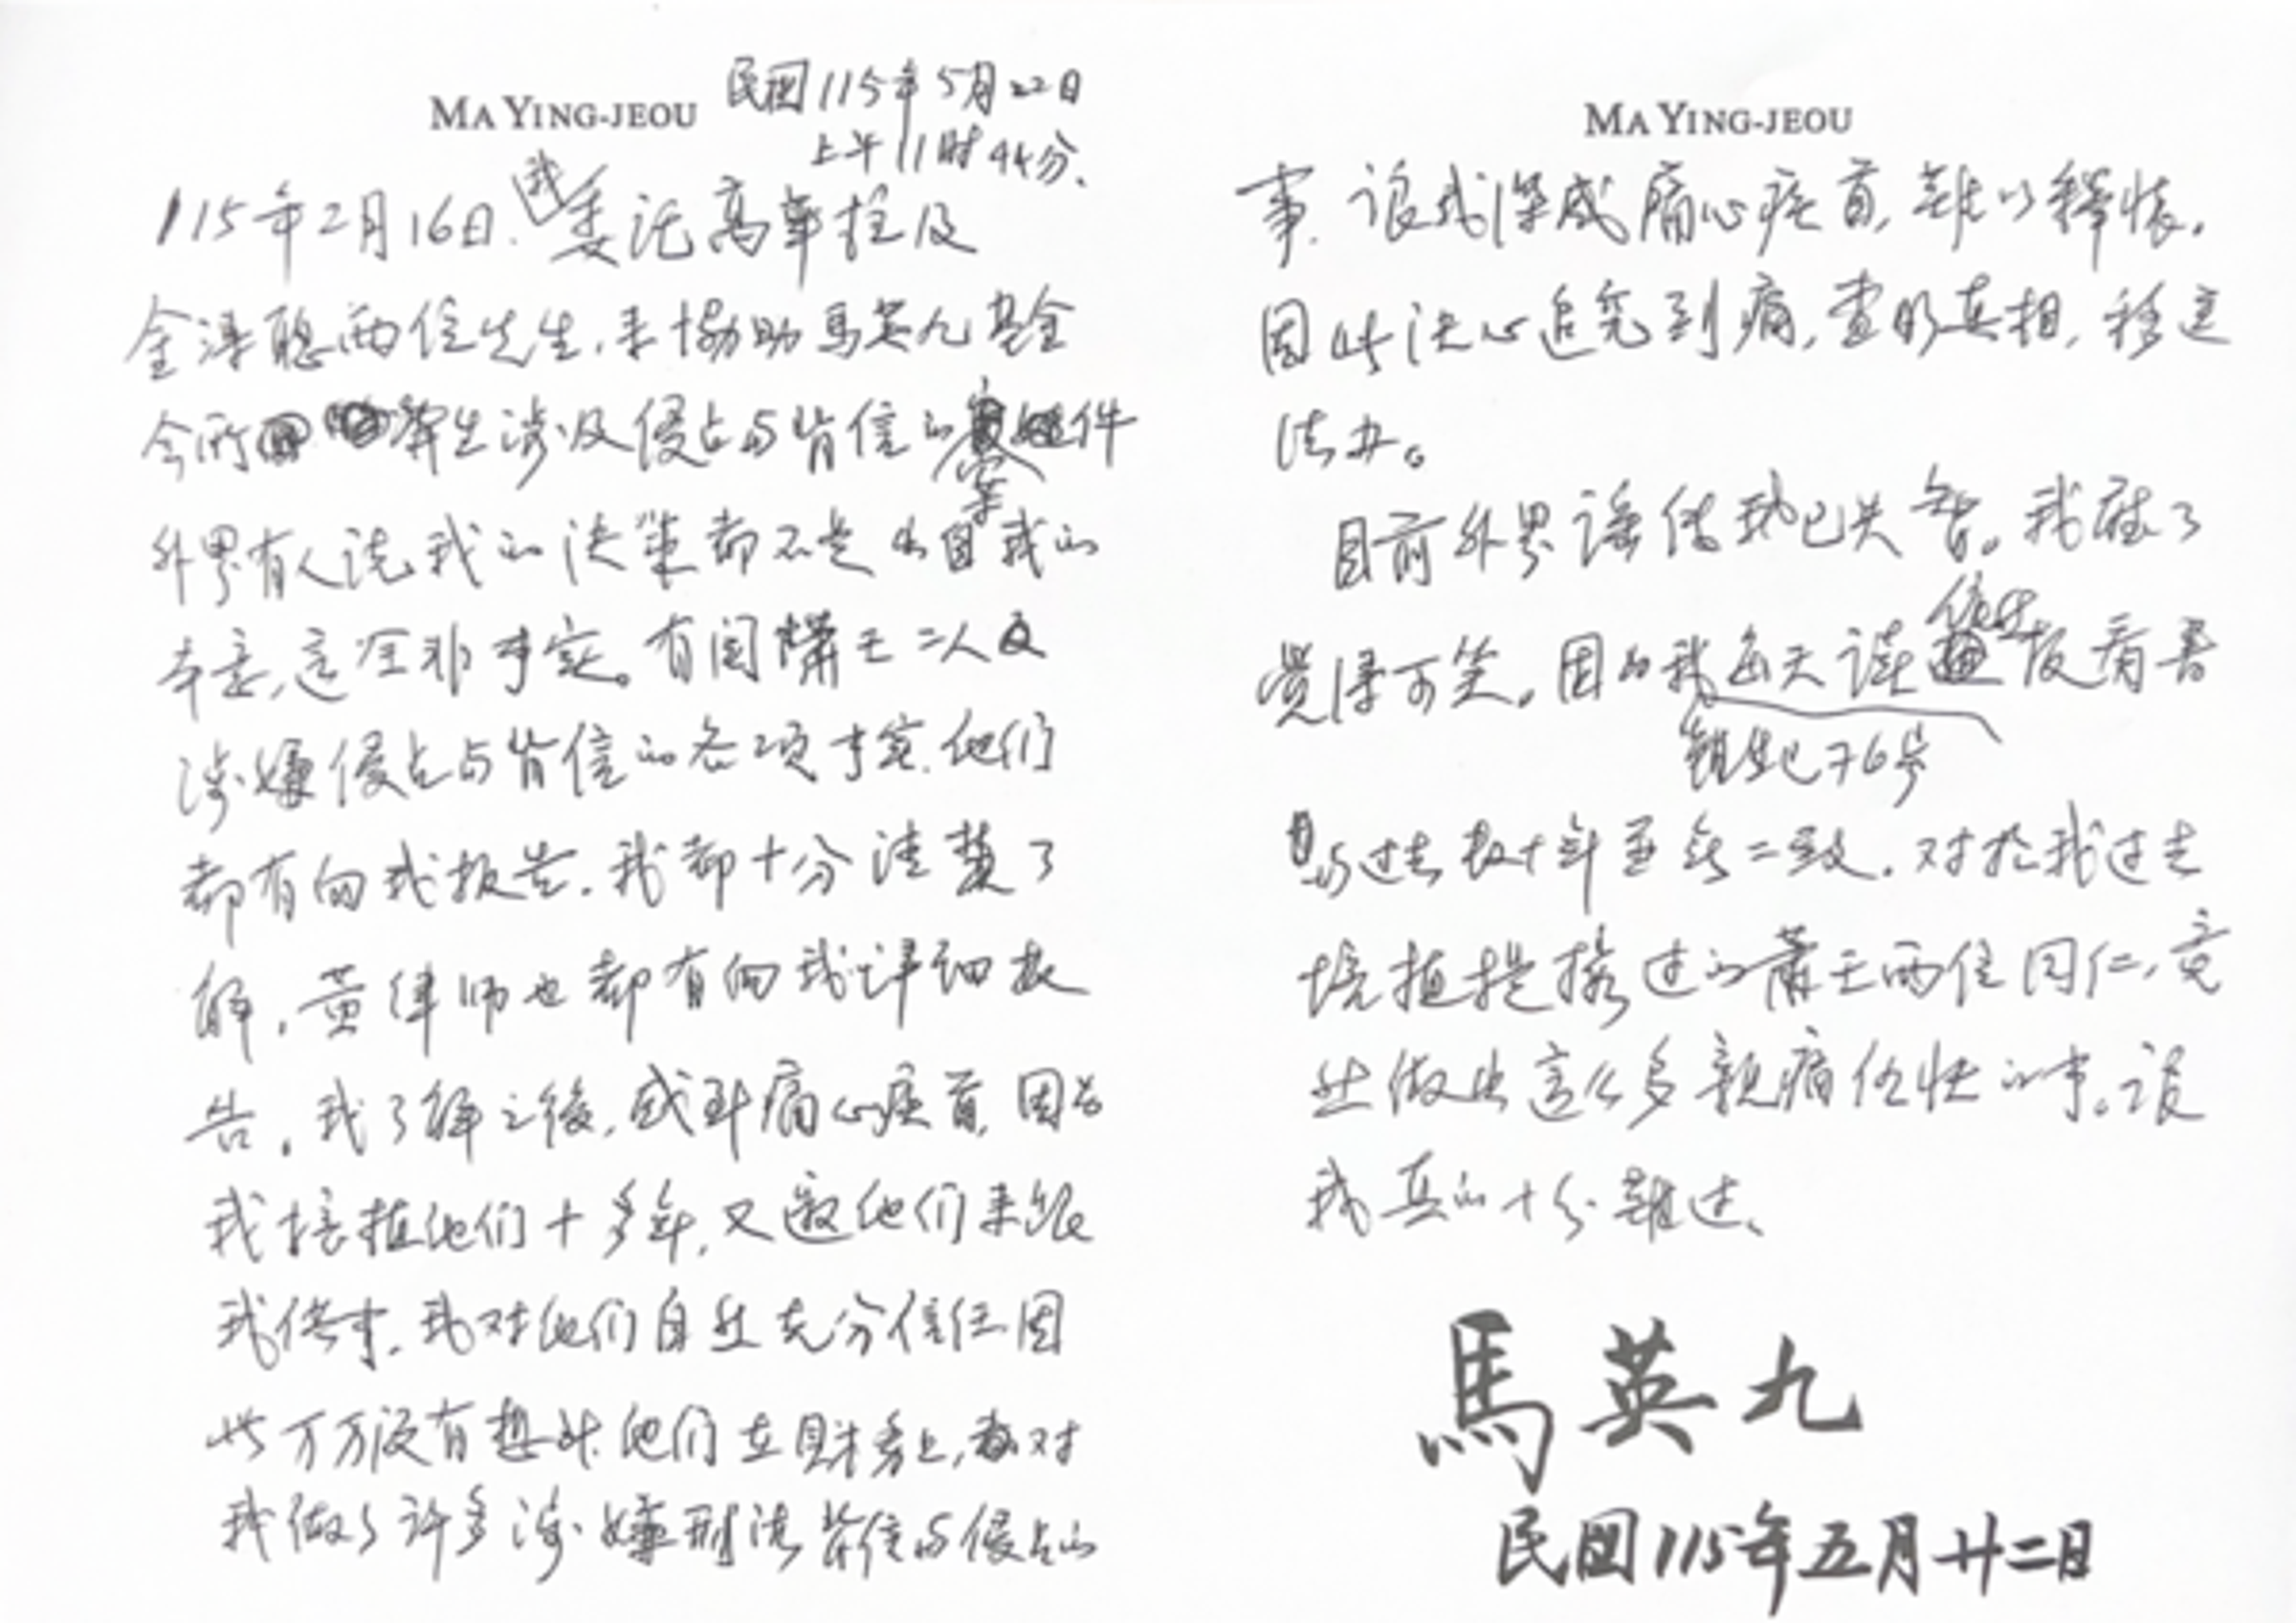 MA YING-JEOU
民國115年5月22日
上午11时44分.
115年2月16日.我委託高華柱及
金溥聰兩位先生,来協助馬英九基金
会所發生涉及侵占与背信的案件
外界有人说我的決策都不是出自我的
本意,这全非事实。有関蕭王二人又
涉嫌侵占与背信的各项事实.他们
都有向我报告.我都十分清楚了
解,黃律师也都有向我詳细报
告。我了解之後,感到痛心疾首,因为
我培植他们十多年,又邀他们来跟
我做事.我对他们自然充分信任因
此万万没有想到他们在財务上,敢对
我做了许多涉嫌刑法背信与侵占的
MA YING-JEOU
事.讓我深感痛心疾首,難以釋懷.
因此决心追究到底,查明真相,移送
法办。
目前外界谣传我已失智。我聽了
覺得可笑。因为我每天读信收报看書
鍛鍊已76岁
与过去数十年並無二致.对於我过去
培植提攜过的蕭王兩位同仁,竟
然做出這么多親痛仇快的事。讓
我真的十分難过、
馬英九
民國115年五月廿二日